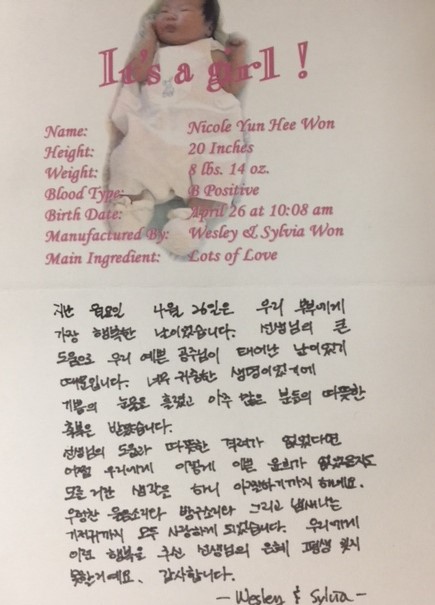 It's a girl !
Name: Nicole Yun Hee Won
Height: 20 Inches
Weight: 8 lbs. 14 oz.
Blood Type: B Positive
Birth Date: April 26 at 10:08 am
Manufactured By: Wesley & Sylvia Won
Main Ingredient: Lots of Love
지난 월요일 사월 26일은 우리 부부에게
가장 행복한 날이었습니다. 선생님의 큰
도움으로 우리 예쁜 공주님이 태어난 날이었기
때문입니다. 너무 귀중한 생명이었기에
기쁨의 눈물을 흘렸고 아주 많은 분들의 따뜻한
축복을 받았습니다.
선생님의 도움과 따뜻한 격려가 없었다면
어쩜 우리에게 이렇게 이쁜 윤희가 없었을지도
모른다는 생각을 하니 아찔하기까지 해요.
우렁찬 울음소리와 방구소리와 그리고 냄새나는
기저귀까지 모두 사랑하게 되었습니다. 우리에게
이런 행복을 주신 선생님의 은혜 평생 잊지
못할거예요. 감사합니다.
- Wesley & Sylvia -